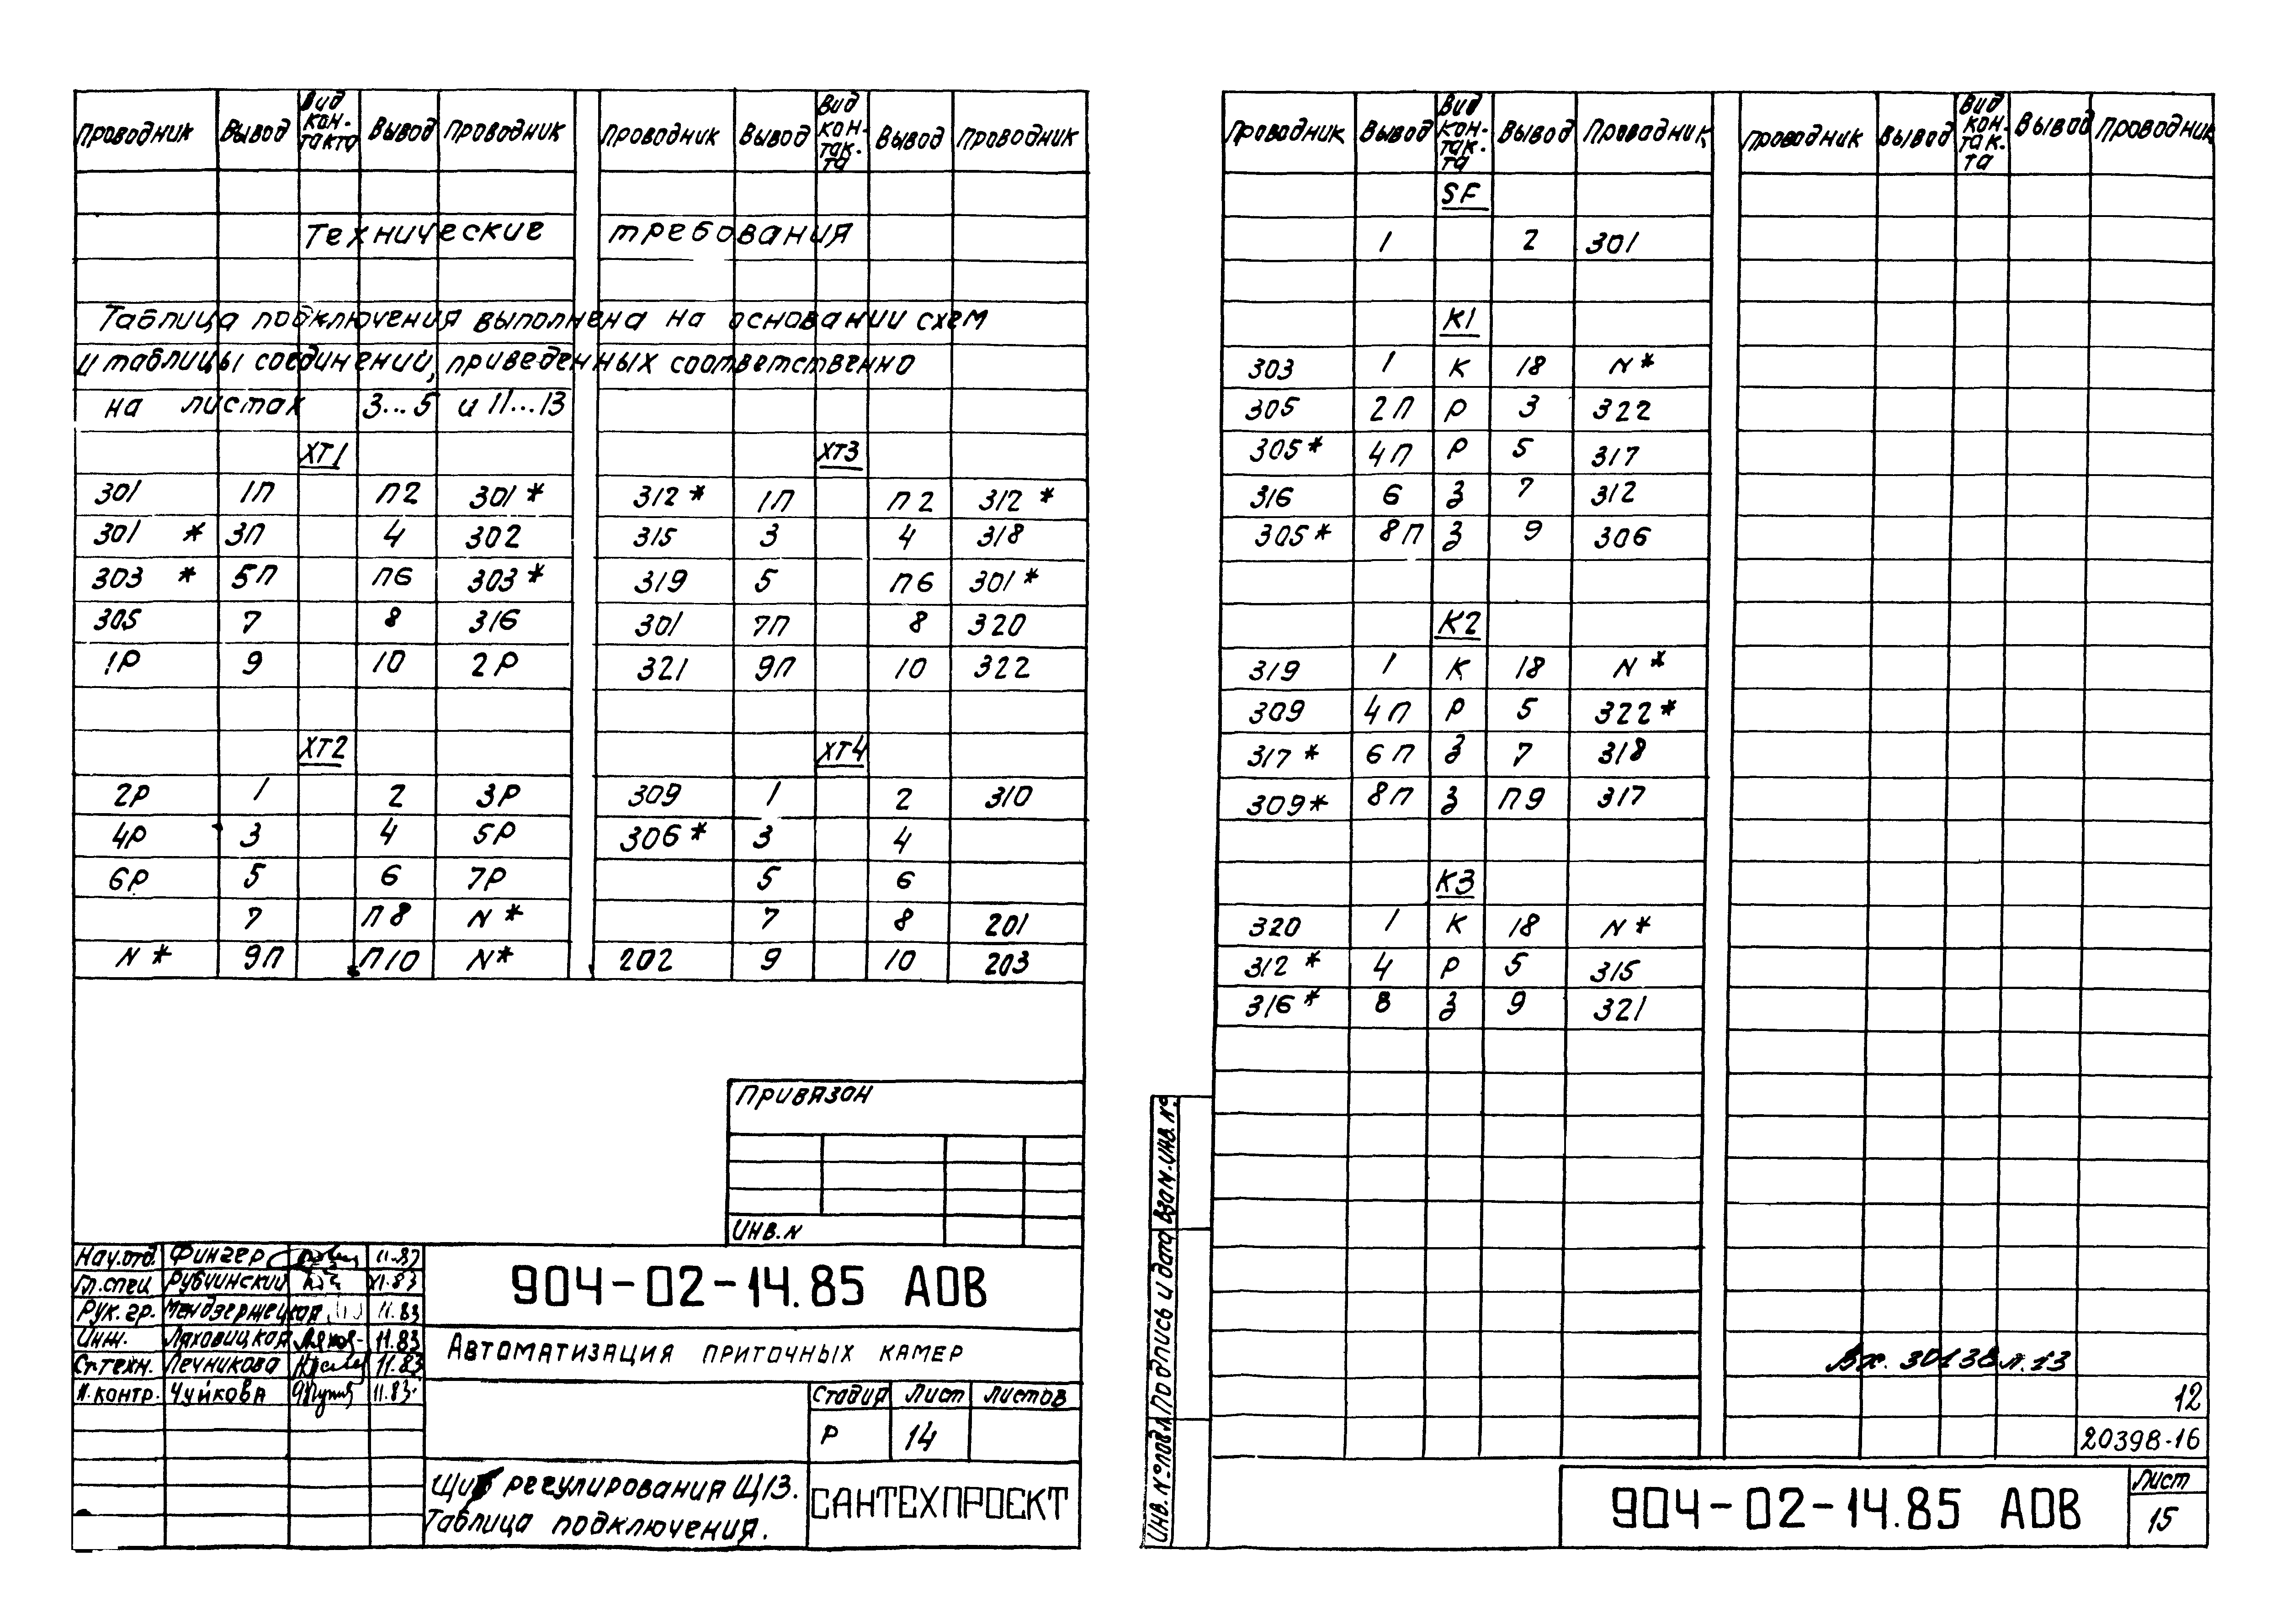 Проводник Вывод Вид кон-такта Вывод Проводник Проводник Вывод Вид кон-так-та Вывод Проводник
Технические требования
Таблица подключения выполнена на основании схем
и таблицы соединений, приведенных соответственно
на листах 3...5 и 11...13
ХТ1 ХТ3
301 1П П2 301* 312* 1П П2 312*
301 * 3П 4 302 315 3 4 318
303 * 5П П6 303* 319 5 П6 301*
305 7 8 316 301 7П 8 320
1Р 9 10 2Р 321 9П 10 322
ХТ2 ХТ4
2Р 1 2 3Р 309 1 2 310
4Р 3 4 5Р 306* 3 4
6Р 5 6 7Р 5 6
7 П8 N* 7 8 201
N* 9П П10 N* 202 9 10 203
Привязон
ИНВ.N
Нач.отд. Фингер 11.83
Гл.спец Рубчинский XI.83
Рук.гр. Мендзержецкая 11.83
Инж. Ляховицкая 11.83
Ст.техн. Печникова 11.83
Н.контр. Чуйкова 11.83
904-02-14.85 АОВ
Автоматизация приточных камер
Стадия Лист Листов
Р 14
Щит регулирования Щ13.
Таблица подключения.
САНТЕХПРОЕКТ
Проводник Вывод Вид кон-так-та Вывод Проводник Проводник Вывод Вид кон-так-та Вывод Проводник
SF
1 2 301
К1
303 1 К 18 N*
305 2П Р 3 322
305* 4П Р 5 317
316 6 З 7 312
305* 8П З 9 306
К2
319 1 К 18 N*
309 4П Р 5 322*
317* 6П З 7 318
309* 8П З П9 317
К3
320 1 К 18 N*
312* 4 Р 5 315
316* 8 З 9 321
Вх. 30138 л.13
12
20398-16
904-02-14.85 АОВ
Лист
15
Инв. № подл. Подпись и дата Взам.инв.№